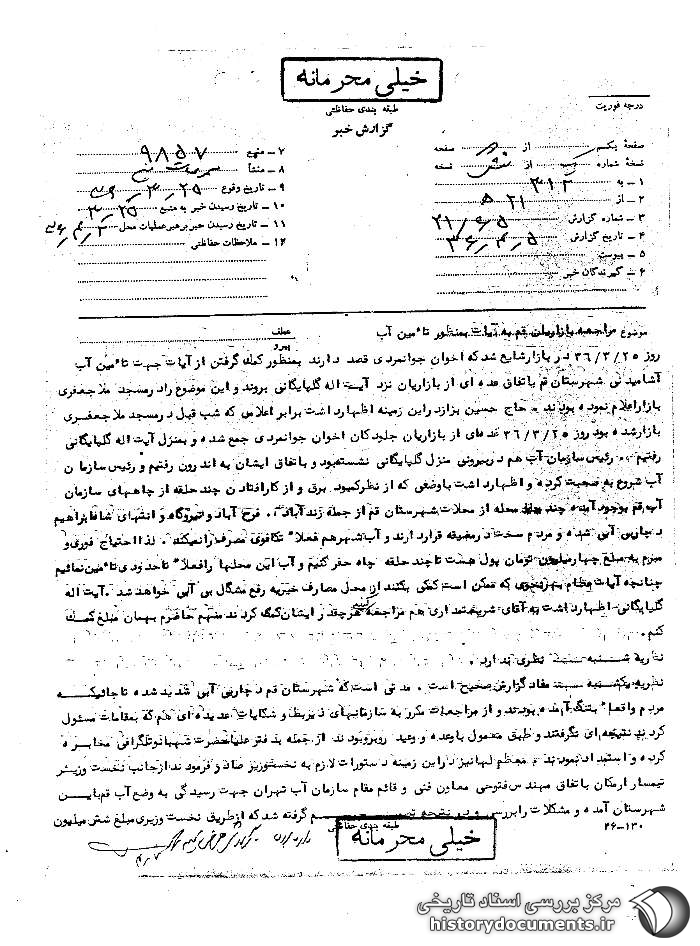 خیلی محرمانه
طبقه بندی حفاظتی
گزارش خبر
درجه فوریت
صفحهٔ یکم از صفحه
نسخهٔ شماره از نسخه
۱ – به ۳۱۲
۲ – از ۲۱ ه
۳ – شماره گزارش
۴ – تاریخ گزارش
۵ – پیوست
۶ – گیرندگان خبر
۷ – منبع ۹۸۵۷
۸ – منشأ
۹ – تاریخ وقوع
۱۰ – تاریخ رسیدن خبر به منبع
۱۱ – تاریخ رسیدن خبر برهبر عملیات محل
۱۲ – ملاحظات حفاظتی
موضوع مراجعه بازاریان قم به آیات بمنظور تأمین آب
عطف
پیرو
روز ۳۶/۳/۲۵ در بازار شایع شد که اخوان جوانمردی قصد دارند بمنظور کمک گرفتن از آیات جهت تأمین آب
آشامیدنی شهرستان قم باتفاق عده ای از بازاریان نزد آیت اله گلپایگانی بروند و این موضوع را در مسجد ملاجعفری
بازار اعلام نموده بودند . حاج حسین بزاز در این زمینه اظهار داشت برابر اعلامی که شب قبل در مسجد ملاجعفری
بازار شده بود روز ۳۶/۳/۲۵ عده ای از بازاریان جلو دکان اخوان جوانمردی جمع شده و بمنزل آیت اله گلپایگانی
رفتیم . رئیس سازمان آب هم در بیرونی منزل گلپایگانی نشسته بود و باتفاق ایشان به اندرون رفتیم و رئیس سازمان
آب شروع به صحبت کرده و اظهار داشت باوضعی که از نظر کمبود برق و از کار افتادن چند حلقه از چاههای سازمان
آب قم بوجود آمده چند محله از محلات شهرستان قم از جمله زندآباد . فرج آباد و نیروگاه و انتهای شاه ابراهیم
دچار بی آبی شده و مردم سخت در مضیقه قرار دارند و آب شهر هم فعلا تکافوی مصرف را نمیکند . لذا احتیاج فوری و
مبرم به مبلغ چهار میلیون تومان پول هست تا چند حلقه چاه حفر کنیم و آب این محلها را فعلا تا حدودی تأمین نمائیم
چنانچه آیات عظام بهر نحوی که ممکن است کمکی بکنند از محل مصارف خیریه رفع مشگل بی آبی خواهد شد . آیت اله
گلپایگانی اظهار داشت به آقای شریعتمداری هم مراجعه کنید هر چقدر ایشان کمک کردند منهم حاضرم بهمان مبلغ کمک
کنم .
نظریه شنبه نظری ندارد .
نظریه یکشنبه مفاد گزارش صحیح است . مدتی است که شهرستان قم دچار بی آبی شدید شده تا جائیکه
مردم واقعا بتنگ آمده بودند و از مراجعات مکرر به سازمانهای ذیربط و شکایات عدیده ای هم که بمقامات مسئول
کردند نتیجه ای نگرفتند و طبق معمول با وعده و وعید روبرو بودند از جمله بدفتر علیاحضرت شهبانو تلگرافی مخابره
کرده و استمداد نمودند معظم لها نیز در این زمینه دستورات لازم به نخست وزیر صادر فرمودند از جانب نخست وزیر
تیمسار باتفاق مهندس فتوحی معاون فنی و قائم مقام سازمان آب تهران جهت رسیدگی به وضع آب قم باین
شهرستان آمده و مشکلات را بررسی و در نتیجه گرفته شد که از طریق نخست وزیری مبلغ شش میلیون
طبقه بندی حفاظتی
۲۶–۱۳۰
خیلی محرمانه
مرکز بررسی اسناد تاریخی
historydocuments.ir